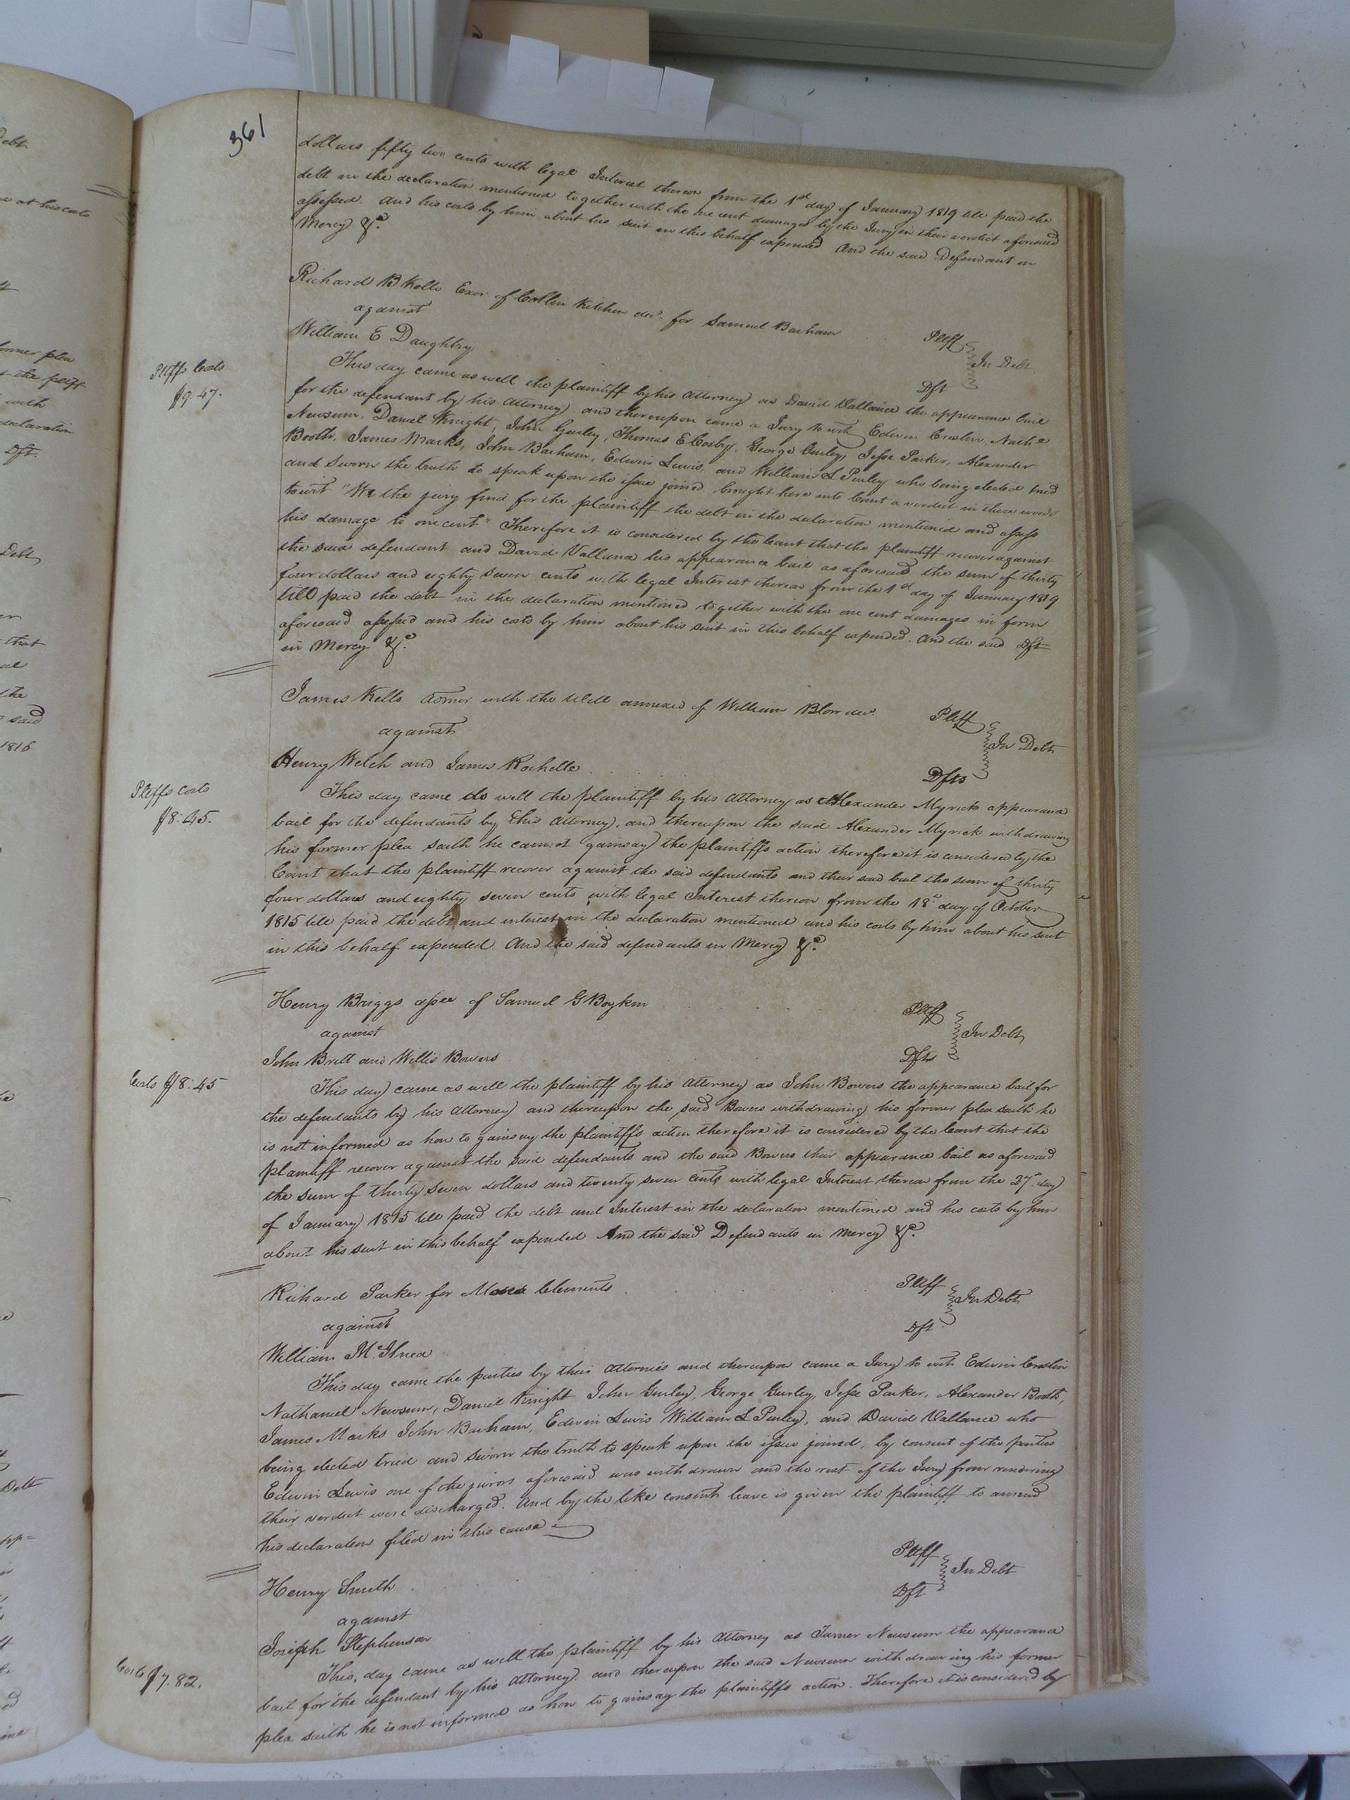 361
dollars fifty two cents with legal Interest thereon from the 1st day of January 1819 till paid the
debt in the declaration mentioned together with the one cent damages by the Jury in their verdict aforesaid
assessed. And his costs by him about his suit in this behalf expended And the said Defendant in
Mercy &c.
Richard B Kello Exor. of Kitchen decd. for Samuel Barham Pltff
against In Debt
William E Daughtry Dft
Pltffs Costs
$9.47.
This day came as well the plaintiff by his Attorney as David Vallance the appearance bail
for the defendant by his Attorney and thereupon came a Jury to wit, Edwin Croslin, Nathl
Newsum, Daniel Knight, John Gurley, Thomas E Cosby, George Gurley, Jesse Parker, Alexander
Booth, James Marks, John Barham, Edwin Lewis, and William L Purley who being elected tried
and sworn the truth to speak upon the issue joined brought here into Court a verdict in these words
towit "We the jury find for the plaintiff the debt in the declaration mentioned and assess
his damage to one cent" Therefore it is considered by the Court that the plaintiff recover against
the said defendant and David Vallance his appearance bail as aforesaid the sum of thirty
four dollars and eighty seven cents with legal Interest thereon from the 1st day of January 1819
till paid the debt in the declaration mentioned together with the one cent damages in form
aforesaid assessed and his costs by him about his suit in this behalf expended. And the said Dft
in Mercy &c.
James Kello admor with the Will annexed of William Blow decd. Pltff
against In Debt
Henry Welch and James Rochelle Dfts
Pltffs costs
$8.45.
This day came as well the plaintiff by his Attorney as Alexander Myrick appearance
bail for the defendants by his Attorney, and thereupon the said Alexander Myrick withdrawing
his former plea saith he cannot gainsay the plaintiffs action therefore it is considered by the
Court that the plaintiff recover against the said defendants and their said bail the sum of thirty
four dollars and eighty seven cents with legal Interest thereon from the 18th day of October
1815 till paid the debt and interest in the declaration mentioned and his costs by him about his suit
in this behalf expended. And the said defendants in Mercy &c.
Henry Briggs assee of Samuel G Boykin Pltff
against In Debt
John Britt and Willis Bowers Dfts
Costs $8.45
This day came as well the plaintiff by his Attorney as John Bowers the appearance bail for
the defendants by his Attorney and thereupon the said Bowers withdrawing his former plea saith he
is not informed as how to gainsay the plaintiffs action therefore it is considered by the Court that the
plaintiff recover against the said defendants and the said Bowers their appearance bail as aforesaid
the sum of thirty seven dollars and twenty seven cents with legal Interest thereon from the 27 day
of January 1815 till paid the debt and Interest in the declaration mentioned and his costs by him
about his suit in this behalf expended And the said Defendants in Mercy &c.
Richard Parker for Moses Clements Pltff
against In Debt
William McIlnea Dft
This day came the parties by their Attornies and thereupon came a Jury to wit Edwin Croslin
Nathaniel Newsum, Daniel Knight John Gurley, George Gurley, Jesse Parker, Alexander Booth,
James Marks John Barham, Edwin Lewis William L Purley, and David Vallance who
being elected tried and sworn the truth to speak upon the issue joined, by consent of the parties
Edwin Lewis one of the jurors aforesaid was withdrawn and the rest of the Jury from rendering
their verdict were discharged. And by the like consent leave is given the plaintiff to amend
his declaration filed in this cause
Henry Smith Pltff
against In Debt
Joseph Stephenson Dft
Costs $7.82.
This day came as well the plaintiff by his Attorney as Turner Newsum the appearance
bail for the defendant by his Attorney and thereupon the said Newsum withdrawing his former
plea saith he is not informed as how to gainsay the plaintiffs action. Therefore it is considered by